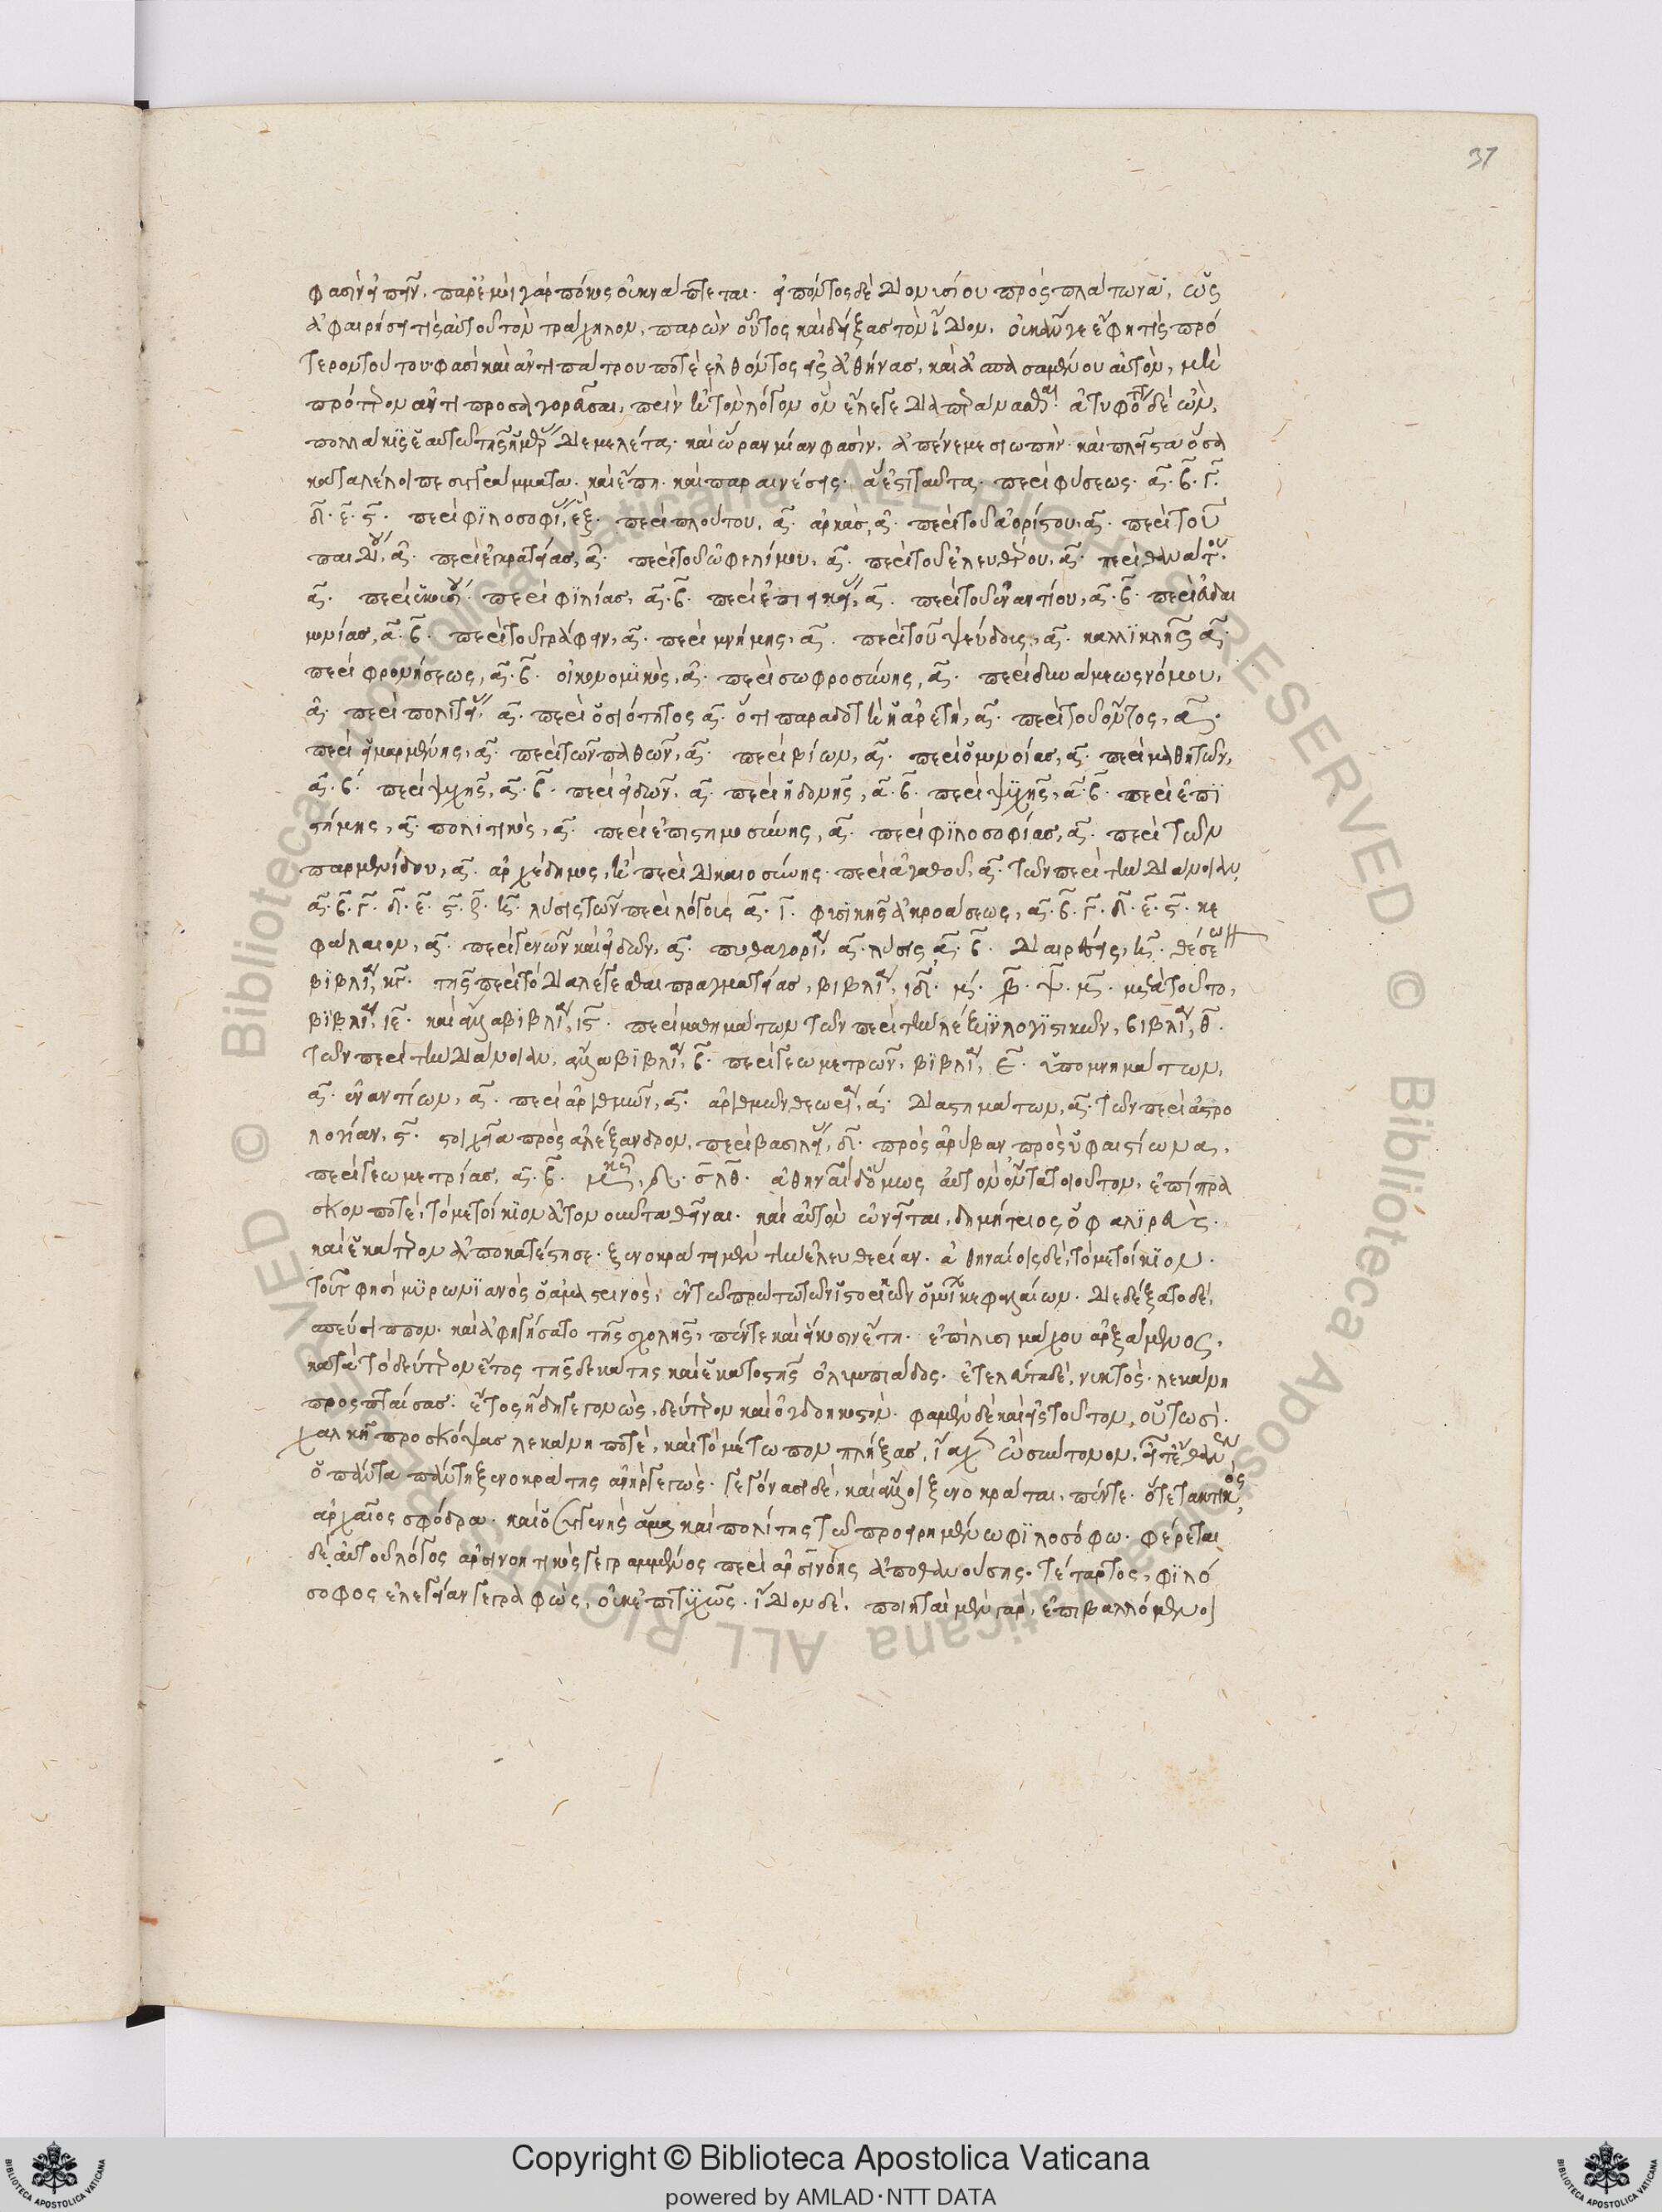 37
φασὶν εἰπεῖν. παρ' ἐμοὶ γὰρ πόκος οὐ κνάπτεται. εἰπόντος δὲ διονυσίου πρὸς πλάτωνα, ὡς
ἀφαιρήσει τίς αὐτοῦ τὸν τράχηλον, παρὼν οὗτος καὶ δείξας τὸν ἴδιον, οὐκ ἄν γε ἔφη τίς πρό
τερον τούτου. φασὶ καὶ ἀντιπάτρου ποτὲ ἐλθόντος εἰς ἀθήνας, καὶ ἀσπασαμένου αὐτὸν, μὴ
πρότερον ἀντιπροσαγορεῦσαι, πρὶν ἢ τὸν λόγον ὃν ἔλεγε διαπεράνασθαι. ἀτυφότατος δὲ ὢν,
πολλάκις ἑαυτῷ τῆς ἡμέρας διεμελέτα. καὶ ὥραν μίαν φασὶν, ἀπένεμε σιωπῇ. καὶ πλεῖστα ὅσα
καταλέλοιπε συγγράμματα. καὶ ἔπη. καὶ παραινέσεις. ἅ ἐστι ταῦτα. περὶ φύσεως. α. β. γ.
δ. ε. ς. περὶ φιλοσοφίας, ἕξ. περὶ πλούτου, α. ἀρκὰς, α. περὶ τοῦ ἀορίστου, α. περὶ τοῦ
παιδίου, α. περὶ ἐγκρατείας, α. περὶ τοῦ ὠφελίμου, α. περὶ τοῦ ἐλευθέρου, α. περὶ θανάτου,
α. περὶ ἑκουσίου. περὶ φιλίας, α. β. περὶ ἐπιεικείας, α. περὶ τοῦ ἐναντίου, α. β. περὶ εὐδαι
μονίας, α. β. περὶ τοῦ γράφειν, α. περὶ μνήμης, α. περὶ τοῦ ψεύδους, α. καλλικλῆς α.
περὶ φρονήσεως, α. β. οἰκονομικὸς, α. περὶ σωφροσύνης, α. περὶ δυνάμεως νόμου,
α. περὶ πολιτείας, α. περὶ ὁσιότητος α. ὅτι παραδοτὴ ἡ ἀρετὴ, α. περὶ τοῦ ὄντος, α.
περὶ εἱμαρμένης, α. περὶ τῶν παθῶν, α. περὶ βίων, α. περὶ ὁμονοίας, α. περὶ μαθητῶν,
α. β. περὶ ψυχῆς, α. β. περὶ εἰδῶν, α. περὶ ἡδονῆς, α. β. περὶ ψυχῆς, α. β. περὶ ἐπι
στήμης, α. πολιτικὸς, α. περὶ ἐπιστημοσύνης, α. περὶ φιλοσοφίας, α. περὶ τῶν
παρμενίδου, α. ἀρχέδημος, ἢ περὶ δικαιοσύνης. περὶ ἀγαθοῦ, α. τῶν περὶ τὴν διάνοιαν,
α. β. γ. δ. ε. ς. ζ. η. λύσις τῶν περὶ λόγους α. ι. φυσικῆς ἀκροάσεως, α. β. γ. δ. ε. ς. κε
φάλαιον, α. περὶ γενῶν καὶ εἰδῶν, α. πυθαγόρια, α. λύσις α. β. διαιρέσεις, η. θέσεων
βιβλία, κγ. τῆς περὶ τὸ διαλέγεσθαι πραγματείας, βιβλία, ιδ. μ. β. ψ. μ. μετὰ τοῦτο,
βιβλία, ιε. καὶ ἄλλα βιβλία, ις. περὶ μαθημάτων τῶν περὶ τὴν λέξιν λογιστικῶν, βιβλία, θ.
τῶν περὶ τὴν διάνοιαν, ἄλλα βιβλία, β. περὶ γεωμετρῶν, βιβλία, ε. ὑπομνημάτων,
α. ἐναντίων, α. περὶ ἀριθμῶν, α. ἀριθμῶν θεωρία, α. διαστημάτων, α. τῶν περὶ ἀστρο
λογίαν, ς. στοιχεῖα πρὸς ἀλέξανδρον, περὶ βασιλείας, δ. πρὸς ἀρύβαν πρὸς ὑφαιστίωνα,
περὶ γεωμετρίας, α. β. σλθ. ἀθηναῖοι δ' ὅμως αὐτὸν ὄντα τοιοῦτον, ἐπίπρα
σκον ποτὲ, τὸ μετοίκιον ἄτονον συνταθῆναι. καὶ αὐτὸν ὠνεῖται, δημήτριος ὁ φαληρεὺς.
καὶ ἑκάτερον ἀποκατέστησε. ξενοκράτει μὲν τὴν ἐλευθερίαν. ἀθηναίοις δὲ, τὸ μετοίκιον.
τοῦτό φησι μυρωνιανὸς ὁ ἀμαστρινὸς, ἐν τῷ πρώτῳ τῶν ἱστορικῶν ὁμοίων κεφαλαίων. διεδέξατο δὲ,
σπεύσιππον. καὶ ἀφηγήσατο τῆς σχολῆς, πέντε καὶ εἴκοσιν ἔτη. ἐπὶ λυσιμάχου ἀρξάμενος,
κατὰ τὸ δεύτερον ἔτος τῆς δεκάτης καὶ ἑκατοστῆς ὀλυμπιάδος. ἐτελεύτα δὲ, νυκτὸς. λεκάνη
προσπταίσας. ἔτος ἤδη γεγονὼς, δεύτερον καὶ ὀγδοηκοστόν. φαμὲν δὲ καὶ εἰς τοῦτον, οὕτωσί.
χαλκῇ προσκόψας λεκάνη ποτὲ, καὶ τὸ μέτωπον πλήξας, ἴαχ ὢ σύντονον, εἶτ' ἔθανεν
ὁ πάντα πάντῃ ξενοκράτης ἀνὴρ γεγὼς. γεγόνασι δὲ, καὶ ἄλλοι ξενοκράται, πέντε. ὅ τε τακτικὸς,
ἀρχαῖος σφόδρα. καὶ ὁ συγγενὴς ἅμα καὶ πολίτης τῷ προειρημένῳ φιλοσόφῳ. φέρεται
δὲ αὐτοῦ λόγος ἀρσινοητικὸς γεγραμμένος περὶ ἀρσινόης ἀποθανούσης. τέταρτος, φιλό
σοφος ἐλεγείαν γεγραφὼς, οὐκ ἐπιτυχῶς. ἴδιον δὲ. ποιηταὶ μὲν γὰρ, ἐπιβαλλόμενοι
Copyright © Biblioteca Apostolica Vaticana
powered by AMLAD·NTT DATA